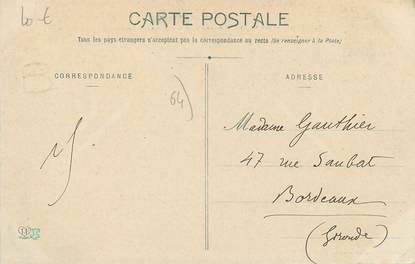 10 €
CARTE POSTALE
Tous les pays étrangers n'acceptent pas la correspondance au recto (Se renseigner à la Poste)
CORRESPONDANCE
ADRESSE
64)
Madame Gauthier
47 rue Saubat
Bordeaux
(Gironde)